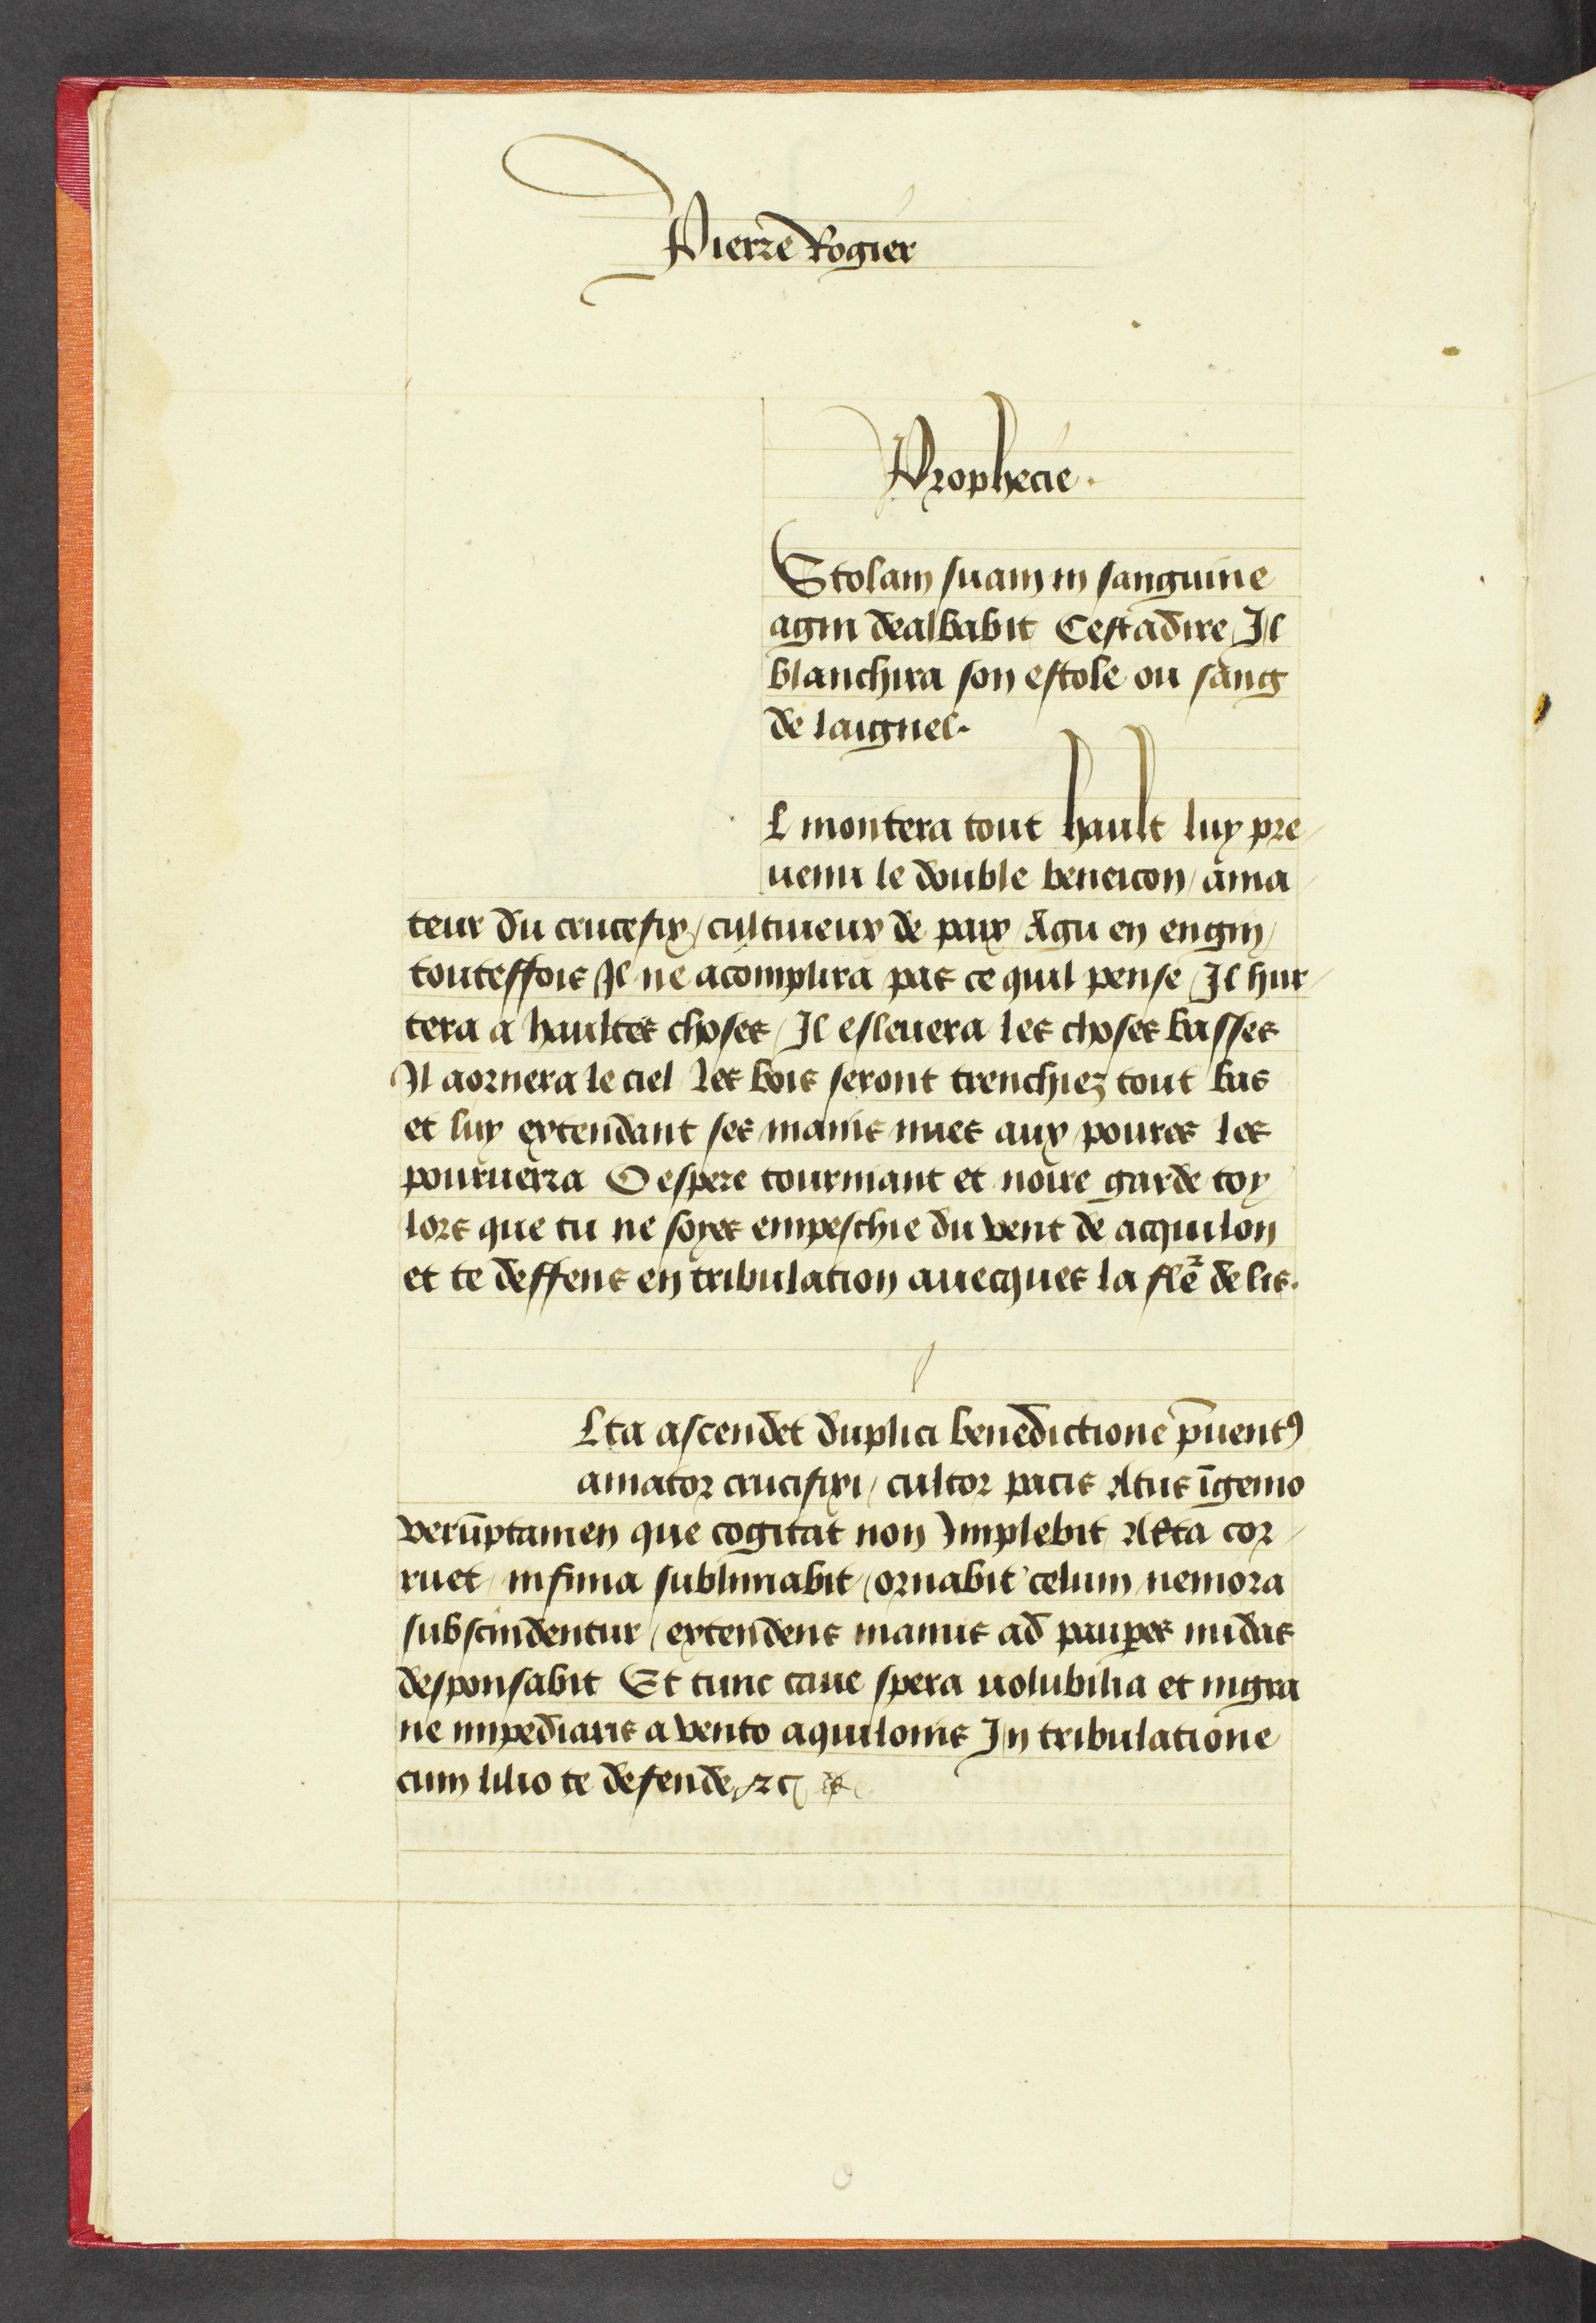 Pierre Rogier
Prophecie.
Stolam suam in sanguine
agni dealbabit Cestadire / Il
blanchira son estole ou sang
de laignel.
L montera tout hault luy pre/
uenu le double beneicon / ama/
teur du crucefix / cultiueur de paix / Agu en engin /
touteffois / Il ne acomplira pas ce quil pense / Il hur/
tera a haultes choses / Il esleuera les choses basses
Il aornera le ciel les bois seront trenchiez tout bas
et luy extendant ses mains nues aux poures les
pouruerra O espere tournant et noire garde toy
lors que tu ne soyes empeschie du vent de acquilon
et te deffens en tribulation auecques la fle᷑ de lis.
Lta ascendet duplici benedictione p̄uentꝰ
amator crucifixi / cultor pacis Atus īgenio
verūptamen que cogitat non Implebit Alta cor/
ruet / infima sublimabit / ornabit celum nemora
subscindentur / extendens manus ad paup̲es nudas
desponsabit Et tunc caue spera uolubilia et nigra
ne impediaris a vento aquilonis In tribulatione
cum lilio te defende / ⁊c